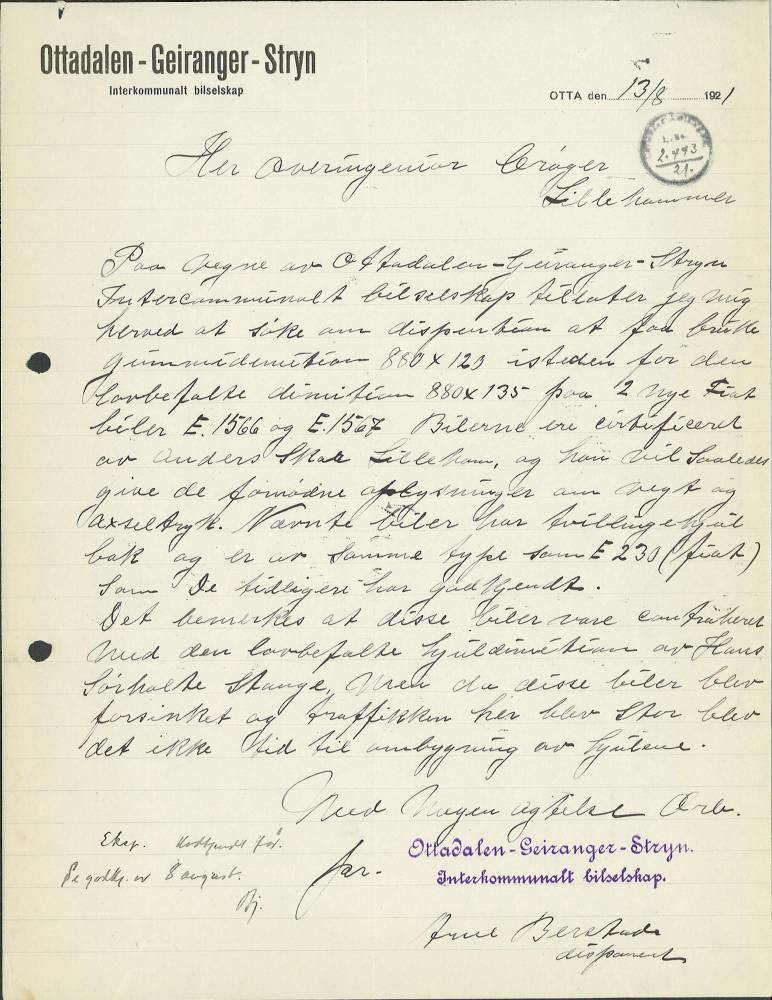 Ottadalen - Geiranger - Stryn
Interkommunalt bilselskap
OTTA den 13/8 1921
2.493
21.
Her overingeniør Crøger
Lillehammer
Paa vegne av Ottadalen-Geiranger-Stryn
Intercommunalt bilselskap tillater jeg mig
herved at søke om dispention at faa bruke
gummidimition 880 x 120 isteden for den
lovbefalte dimition 880 x 135 paa 2 nye Fiat
biler E. 1566 og E. 1567 Bilerne ere certificeret
av Anders Skar Lilleham, og han vil saaledes
give de fornødne oplysninger om vegt og
axseltryk. Nævnte biler har tvillingehjul
bak og er av samme type som E 230 (fiat)
som De tidligere har godkjendt.
Det bemerkes at disse biler vare contraheret
med den lovbefalte hjuldimition av Hans
Sørholte Stange, men da disse biler blev
forsinket og traffikken her blev stor blev
det ikke tid til ombygning av hjulene.
Med megen agtelse Ærb.
for-
Ottadalen - Geiranger - Stryn.
Interkommunalt bilselskap.
Arne Berstad
disponent
Eksp. Godkjendt før.
Se godkj. av 8 august.